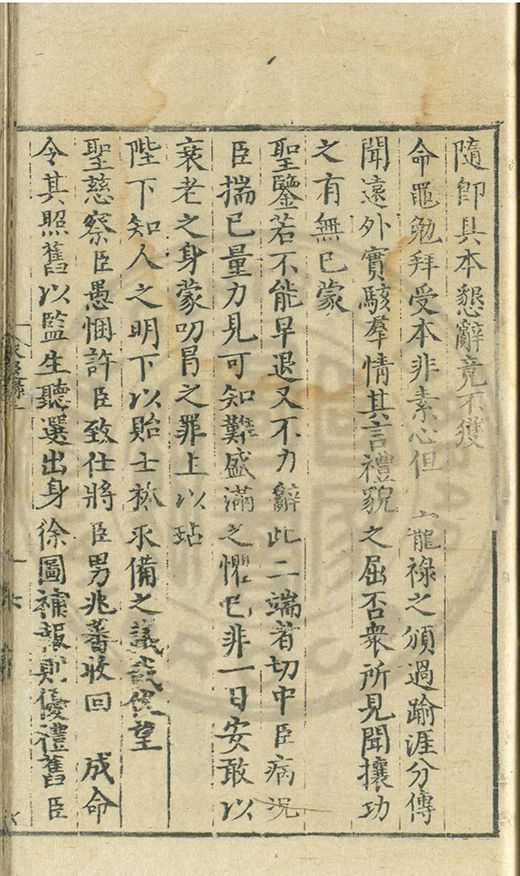 隨即具本懇辭竟不獲
命黽勉拜受本非素心但　寵祿之頒過踰涯分傳
聞遠外實駭羣情其言禮貌之屈否衆所見聞攘功
之有無已蒙
聖鑒若不能早退又不力辭此二端者切中臣病況
臣揣已量力見可知難盛滿之懼已非一日安敢以
衰老之身蒙叨冒之罪上以玷
陛下知人之明下以貽士林求備之議哉伏望
聖慈察臣愚悃許臣致仕將臣男兆蕃收回　成命
令其照舊以監生聽選出身徐圖補報則優禮舊臣